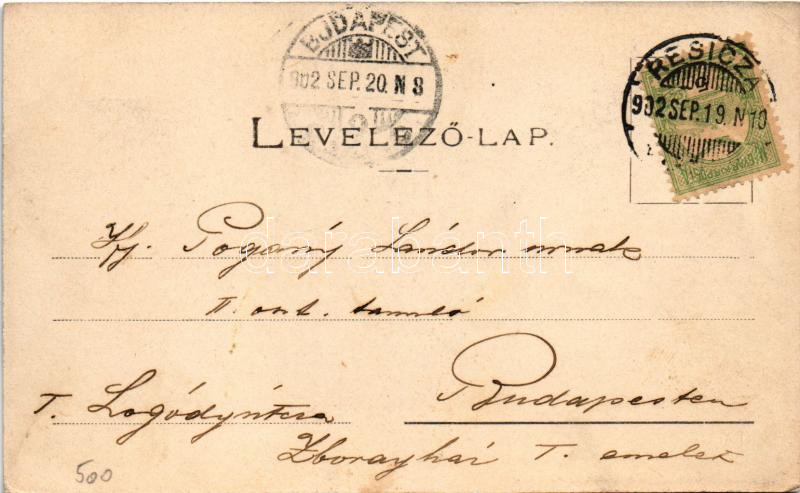 BUDAPEST
902 SEP. 20. N 8
RESICZA
902 SEP. 19. N 10
LEVELEZŐ-LAP.
Ifj. Pogány Sándor urnak
darabanth
II. oszt. tanuló
Budapesten
I. Logódyútcza
Zborayház I. emelet
500